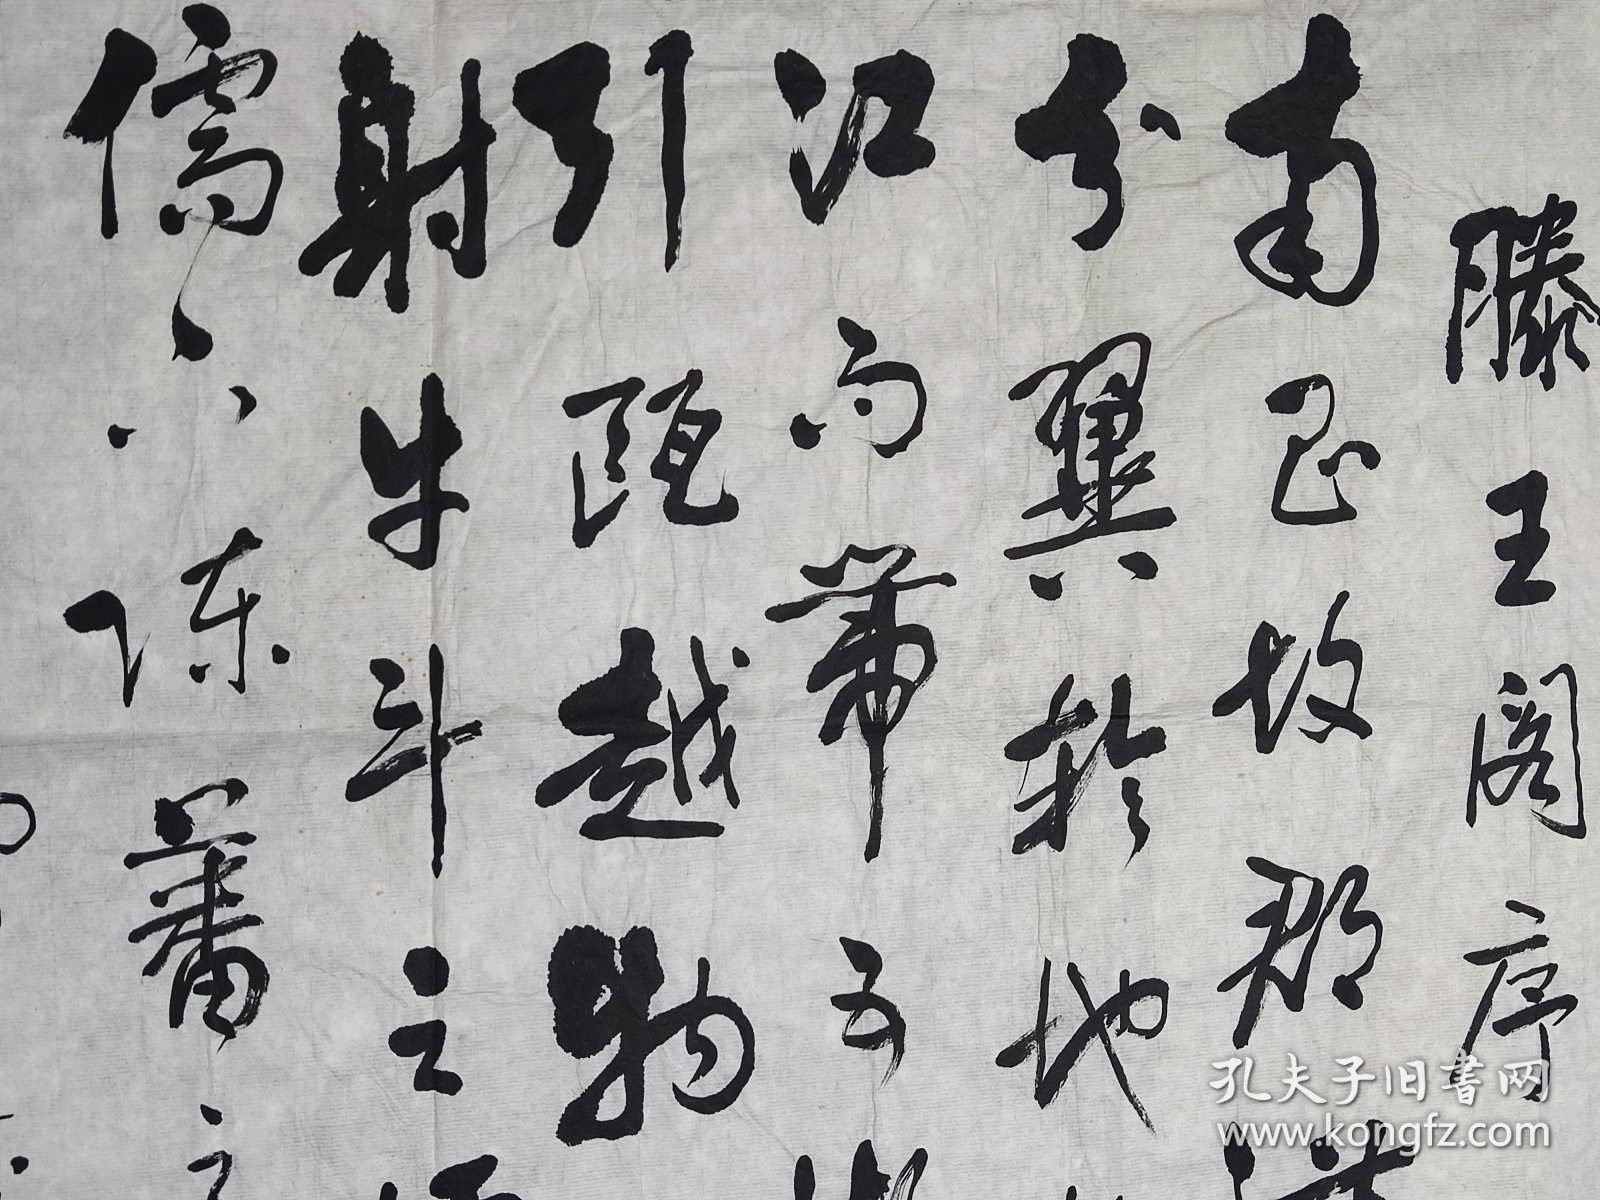 滕王阁序
南昌故郡洪
分翼轸地
江而帶五湖
引瓯越物
射牛斗之墟
儒下陈蕃之
孔夫子旧书网
www.kongfz.com